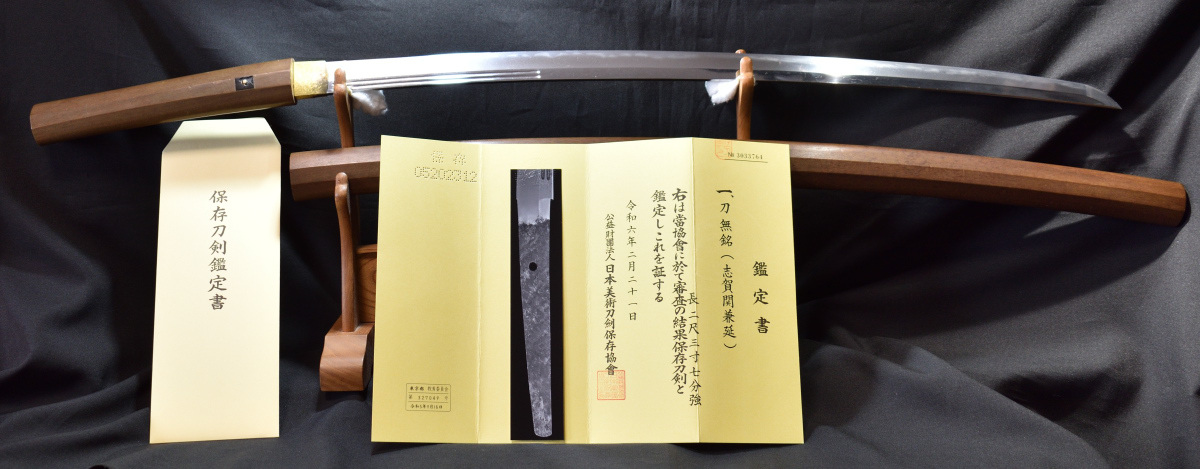 保存刀剣鑑定書
保存
05202312
№ 3033764
鑑定書
一、刀 無銘（志賀関兼延）
長 二尺三寸七分強
右は當協會に於て審査の結果保存刀剣と
鑑定しこれを証する
令和六年二月二十一日
公益財團法人 日本美術刀剣保存協會